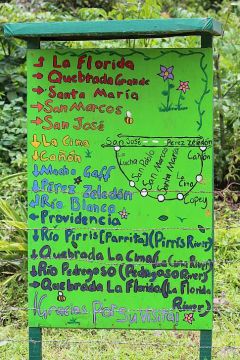 La Florida
Quebrada Grande
Santa María
San Marcos
San José
La Cima
Cañón
Macho Gaff
Pérez Zeledón
Río Blanco
Providencia
Río Pirris [Parrita] (Pirris River)
Quebrada La Cima (La Cima River)
Río Pedregoso (Pedregoso River)
Quebrada La Florida (La Florida River)
¡Gracias por su visita!
San José Pérez Zeledón
Cañón
La Lucha
San Pablo
San Marcos
Santa María
La Cima
Copey